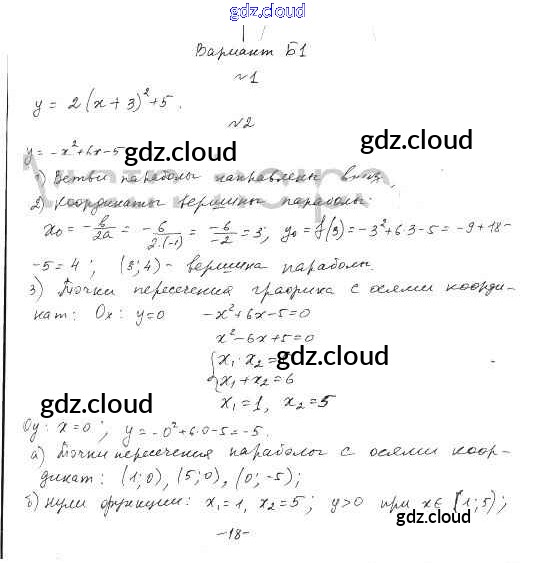 gdz.cloud
Вариант Б1
№1
y = 2(x+3)²+5.
№2
y = -x²+6x-5
gdz.cloud
1) Ветви параболы направлены вниз.
2) Координаты вершины параболы:
x₀ = -b/2a = -6/2·(-1) = -6/-2 = 3; y₀ = f(3) = -3²+6·3-5 = -9+18-
gdz.cloud gdz.cloud
-5 = 4; (3; 4) - вершина параболы.
3) Точки пересечения графика с осями коорди-
нат: Ox: y=0 -x²+6x-5=0
x²-6x+5=0
gdz.cloud
{x₁·x₂ = 5
x₁+x₂ = 6
gdz.cloud
x₁=1, x₂=5
Oy: x=0; y = -0²+6·0-5 = -5.
gdz.cloud
а) Точки пересечения параболы с осями коор-
динат: (1; 0), (5; 0), (0; -5);
gdz.cloud
б) нули функции: x₁=1, x₂=5; y>0 при x∈(1; 5);
gdz.cloud
-18-